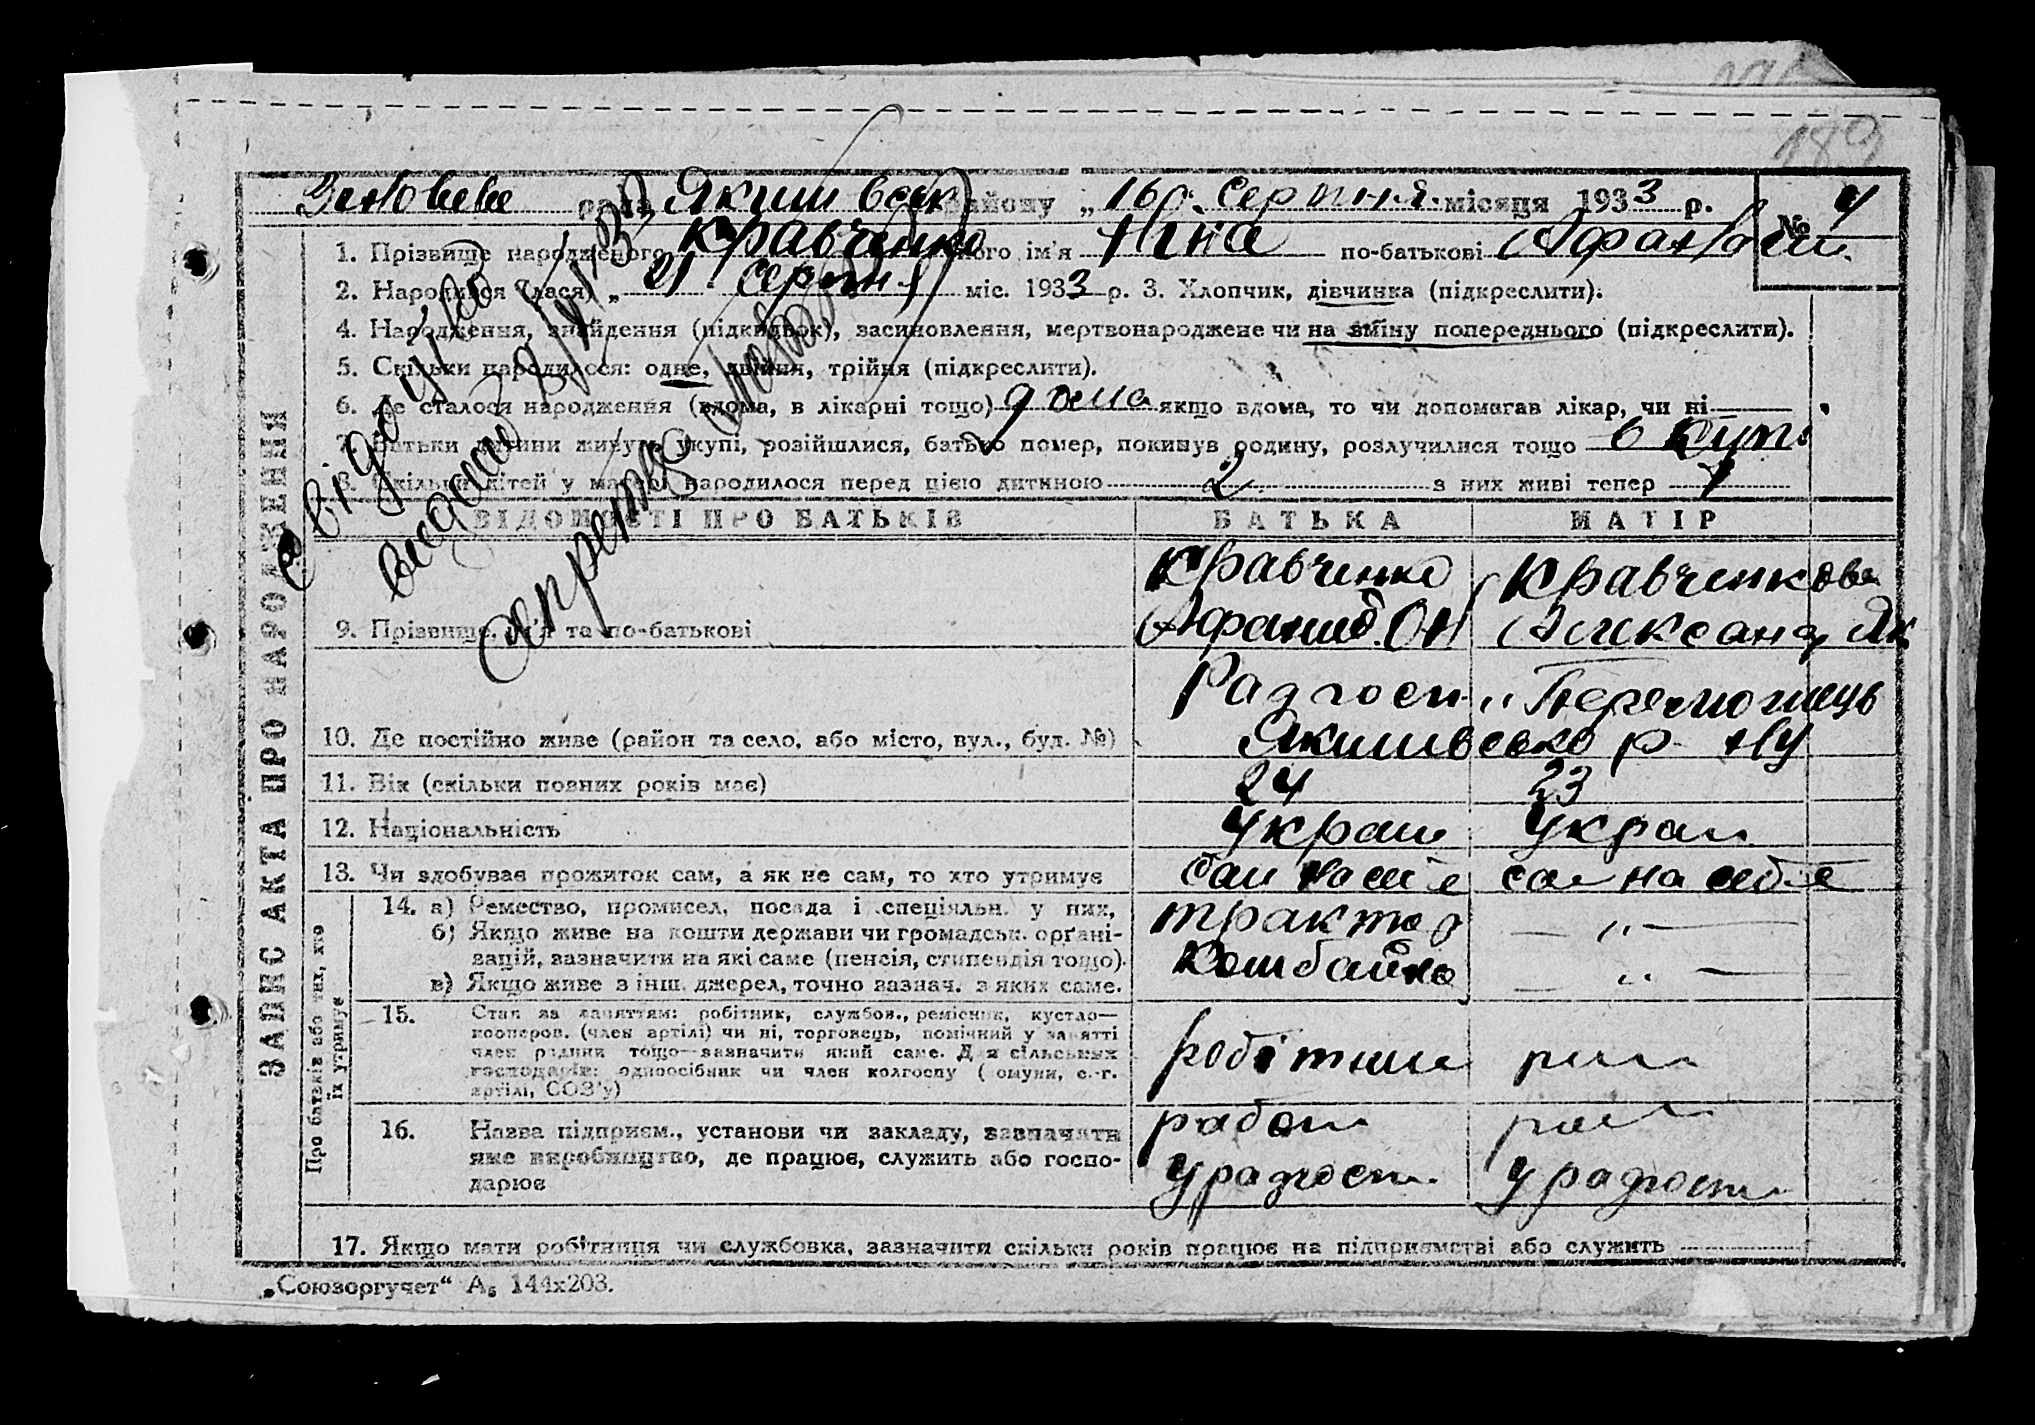 189
Зиновеве ради Якимівськ району „ 16 „ Серпня місяця 1933 р.
№ 4
1. Прізвище народженого Кравченко його ім'я Ніна по-батькові Афанаси.
2. Народився (лася) „ 21 Серпня міс. 1933 р. 3. Хлопчик, дівчинка (підкреслити).
4. Народження, знайдення (підкидьок), засиновлення, мертвонароджене чи на зміну попереднього (підкреслити).
5. Скільки народилося: одне, двійня, трійня (підкреслити).
6. Де сталося народження (вдома, в лікарні тощо) дома якщо вдома, то чи допомагав лікар, чи ні
7. Батьки дитини живуть укупі, розійшлися, батько помер, покинув родину, розлучилися тощо в купі
8. Скільки дітей у матері народилося перед цією дитиною 2 з них живі тепер 1
Свідоцтво
видано
Секретар
ВІДОМОСТІ ПРО БАТЬКІВ БАТЬКА МАТІР
ЗАПИС АКТА ПРО НАРОДЖЕННЯ
9. Прізвище, ім'я та по-батькові
Кравченко Кравченкова
Афанид. Он Александ Як
10. Де постійно живе (район та село, або місто, вул., буд. №)
Радгосп „ Переможець
Якимівсько р-ну
11. Вік (скільки повних років має) 24 23
12. Національність Украи Украи
13. Чи здобуває прожиток сам, а як не сам, то хто утримує сам на себе сам на себе
Про батьків або тих, хто їх утримує
14. а) Ремество, промисел, посада і спеціяльн. у них,
б) Якщо живе на кошти держави чи громадськ. орґані-
зацій, зазначити на які саме (пенсія, стипендія тощо).
в) Якщо живе з інш. джерел, точно зазнач. з яких саме.
трактор — „ —
Комбайно — „ —
15. Стан за заняттям: робітник, службов., ремісник, кустар—
кооперов. (член артілі) чи ні, торговець, помічний у занятті
член родини тощо—зазначити який саме. Для сільських
господарів: одноосібник чи член колгоспу (комуни, с.-г.
артілі, СОЗ'у)
робітник
16. Назва підприєм., установи чи закладу, зазначити
яке виробництво, де працює, служить або госпо-
дарює
работи
у радгосп у радгосп
17. Якщо мати робітниця чи службовка, зазначити скільки років працює на підприємстві або служить
„Союзоргучет“ А₅ 144х203.